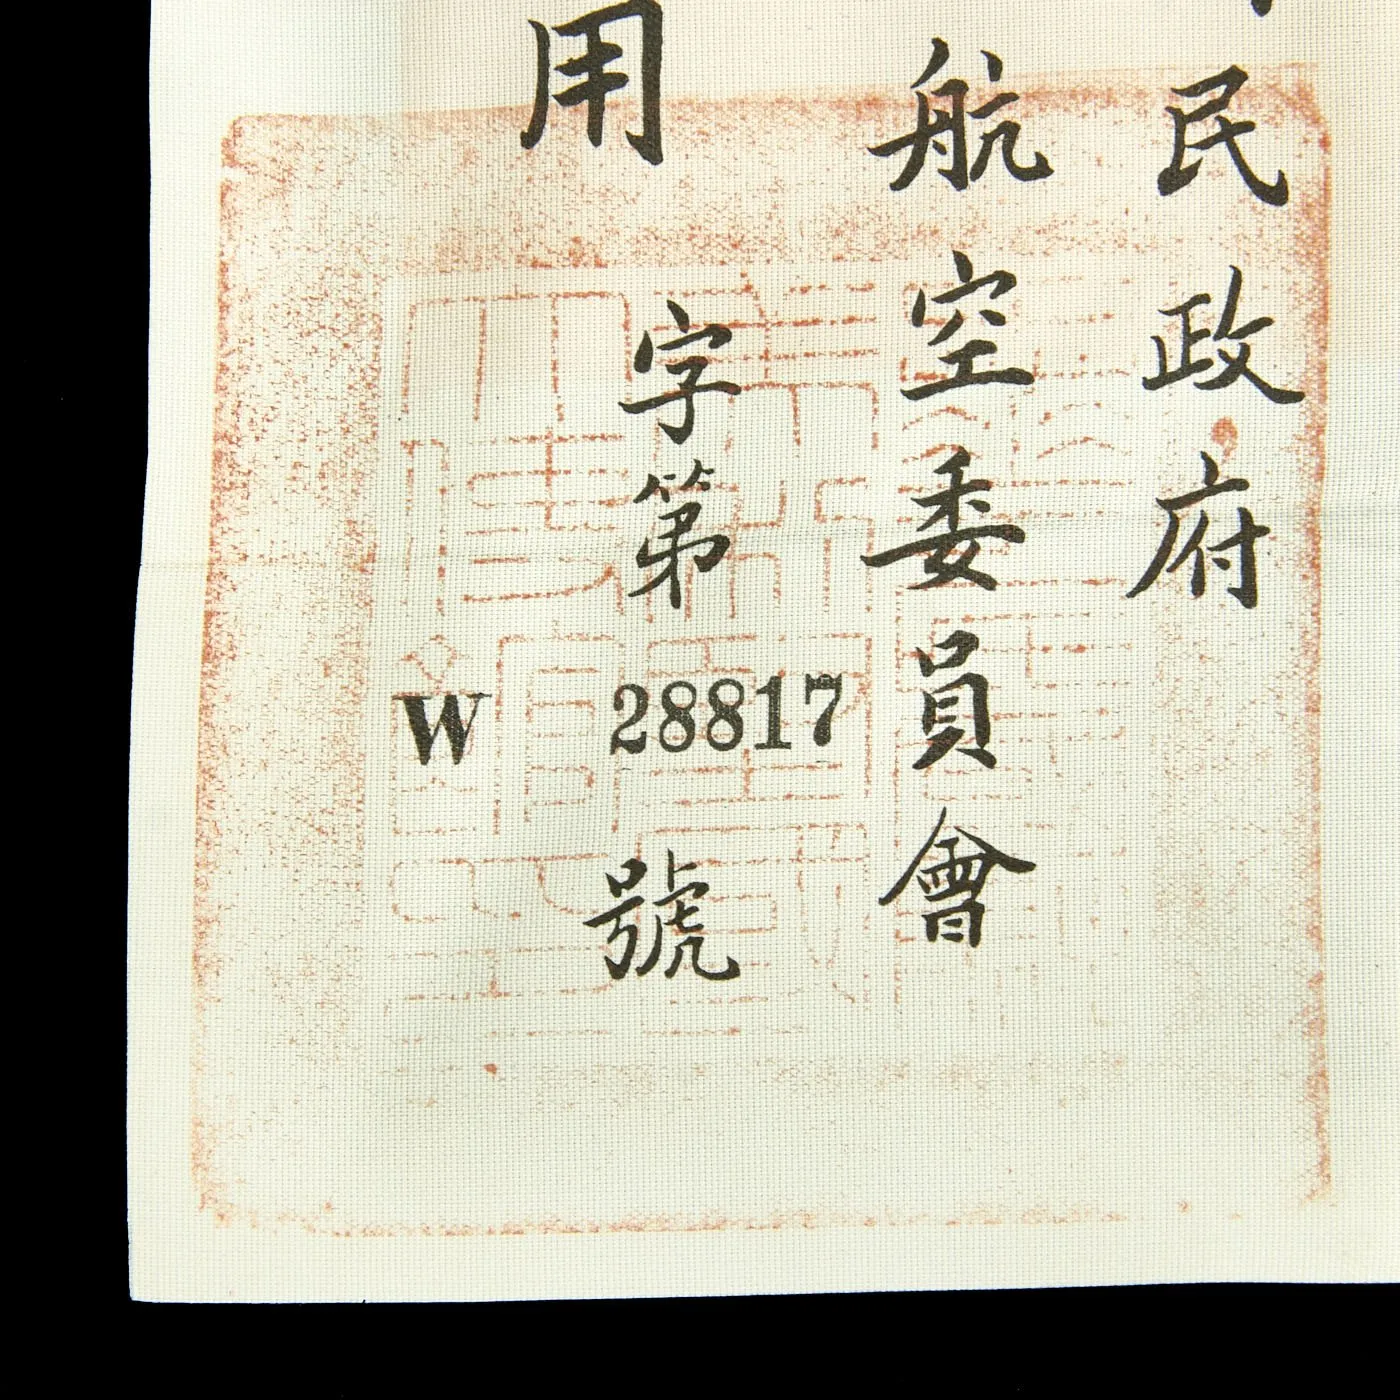 民政府
航空委員會
字第 28817 號
用
W